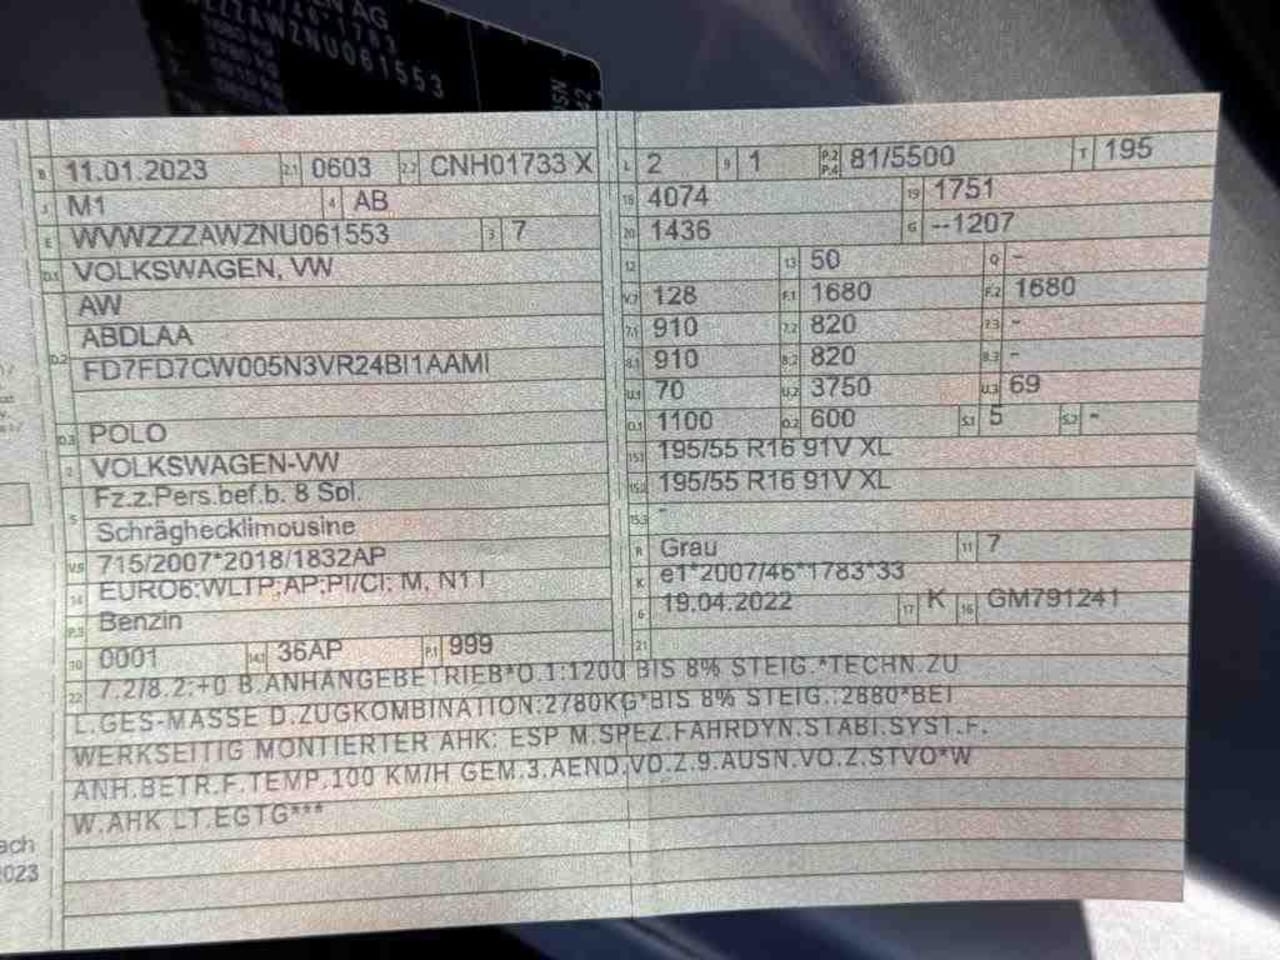 EN AG
/46*1783
ZZZAWZNU061553
B 11.01.2023 2.1 0603 2.2 CNH01733 X
J M1 4 AB
E WVWZZZAWZNU061553 3 7
D.1 VOLKSWAGEN, VW
AW
ABDLAA
D.2 FD7FD7CW005N3VR24BI1AAMI
D.3 POLO
2 VOLKSWAGEN-VW
Fz.z.Pers.bef.b. 8 Spl.
5 Schräghecklimousine
V.9 715/2007*2018/1832AP
14 EURO6;WLTP;AP;PI/CI; M, N1 I
P.3 Benzin
10 0001 14.1 36AP P.1 999
L 2 9 1 P.2 P.4 81/5500 T 195
18 4074 19 1751
20 1436 G --1207
12 13 50 Q -
V.7 128 F.1 1680 F.2 1680
7.1 910 7.2 820 7.3 -
8.1 910 8.2 820 8.3 -
U.1 70 U.2 3750 U.3 69
O.1 1100 O.2 600 S.1 5 S.2 -
15.1 195/55 R16 91V XL
15.2 195/55 R16 91V XL
15.3 -
R Grau 11 7
K e1*2007/46*1783*33
6 19.04.2022 17 K 16 GM791241
21
22 7.2/8.2:+0 B.ANHÄNGEBETRIEB*O.1:1200 BIS 8% STEIG.*TECHN.ZU
L.GES-MASSE D.ZUGKOMBINATION:2780KG*BIS 8% STEIG.:2880*BEI
WERKSEITIG MONTIERTER AHK: ESP M.SPEZ.FAHRDYN.STABI.SYST.F.
ANH.BETR.F.TEMP.100 KM/H GEM.3.AEND.VO.Z.9.AUSN.VO.Z.STVO*W
W.AHK LT.EGTG***
ach
2023